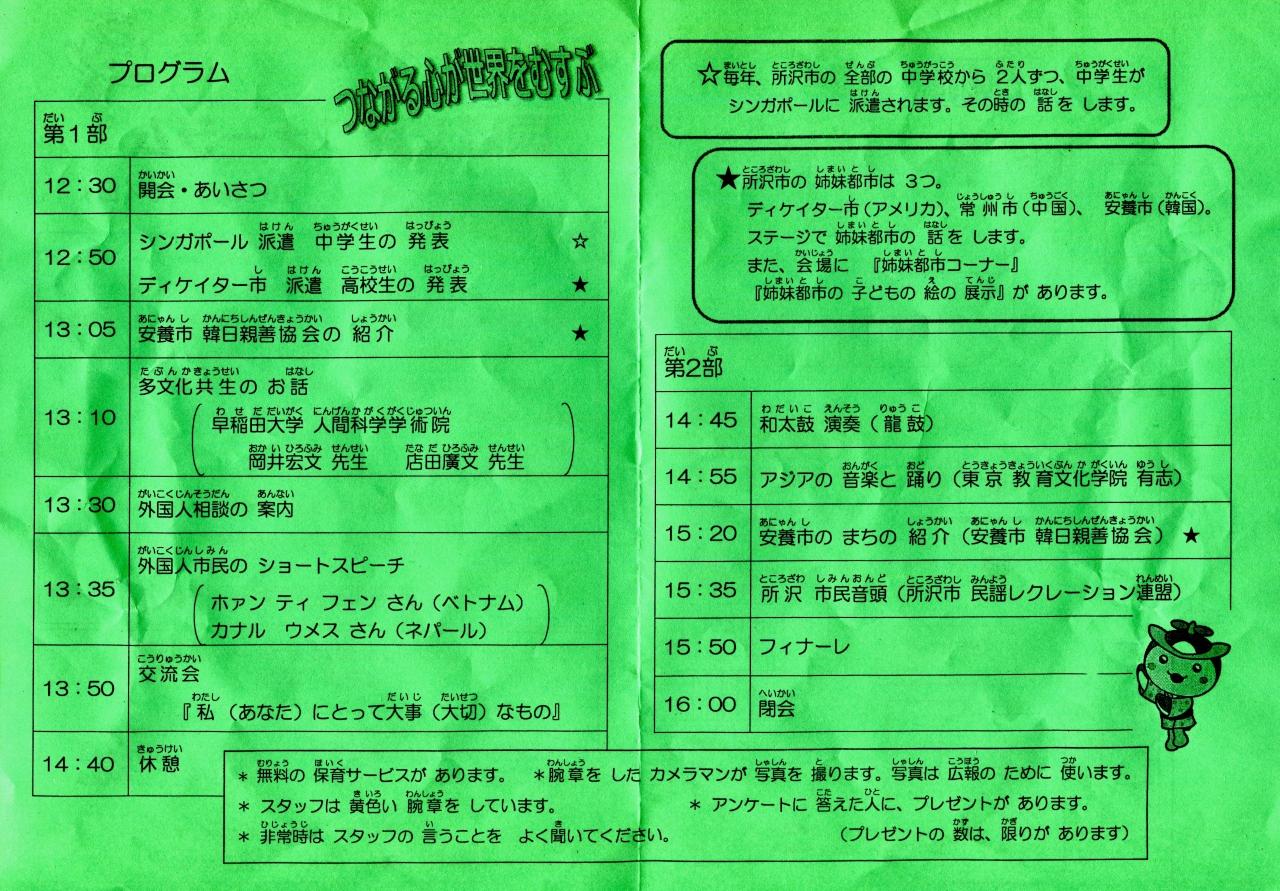 プログラム
つながる心が世界をむすぶ
第1部
12:30 開会・あいさつ
12:50 シンガポール 派遣 中学生の 発表 ☆
ディケイター市 派遣 高校生の 発表 ★
13:05 安養市 韓日親善協会の 紹介 ★
13:10 多文化共生の お話
早稲田大学 人間科学学術院
岡井宏文 先生 店田廣文 先生
13:30 外国人相談の 案内
13:35 外国人市民の ショートスピーチ
ホァン ティ フェン さん(ベトナム)
カナル ウメス さん(ネパール)
13:50 交流会
『私(あなた)にとって大事(大切)なもの』
14:40 休憩
☆毎年、所沢市の 全部の 中学校から 2人ずつ、中学生が
シンガポールに 派遣されます。その時の 話を します。
★所沢市の 姉妹都市は 3つ。
ディケイター市(アメリカ)、常州市(中国)、 安養市(韓国)。
ステージで 姉妹都市の 話を します。
また、会場に 『姉妹都市コーナー』
『姉妹都市の 子どもの 絵の 展示』が あります。
第2部
14:45 和太鼓 演奏(龍鼓)
14:55 アジアの 音楽と 踊り(東京 教育文化学院 有志)
15:20 安養市の まちの 紹介(安養市 韓日親善協会) ★
15:35 所沢 市民音頭(所沢市 民謡レクレーション連盟)
15:50 フィナーレ
16:00 閉会
* 無料の 保育サービスが あります。 *腕章を した カメラマンが 写真を 撮ります。写真は 広報の ために 使います。
* スタッフは 黄色い 腕章を しています。 * アンケートに 答えた人に、プレゼントが あります。
* 非常時は スタッフの 言うことを よく聞いてください。 (プレゼントの 数は、限りが あります)